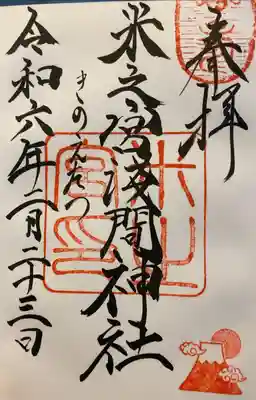 奉拝
米之宮浅間神社
きのえたつ
令和六年二月二十三日
米之
宮印